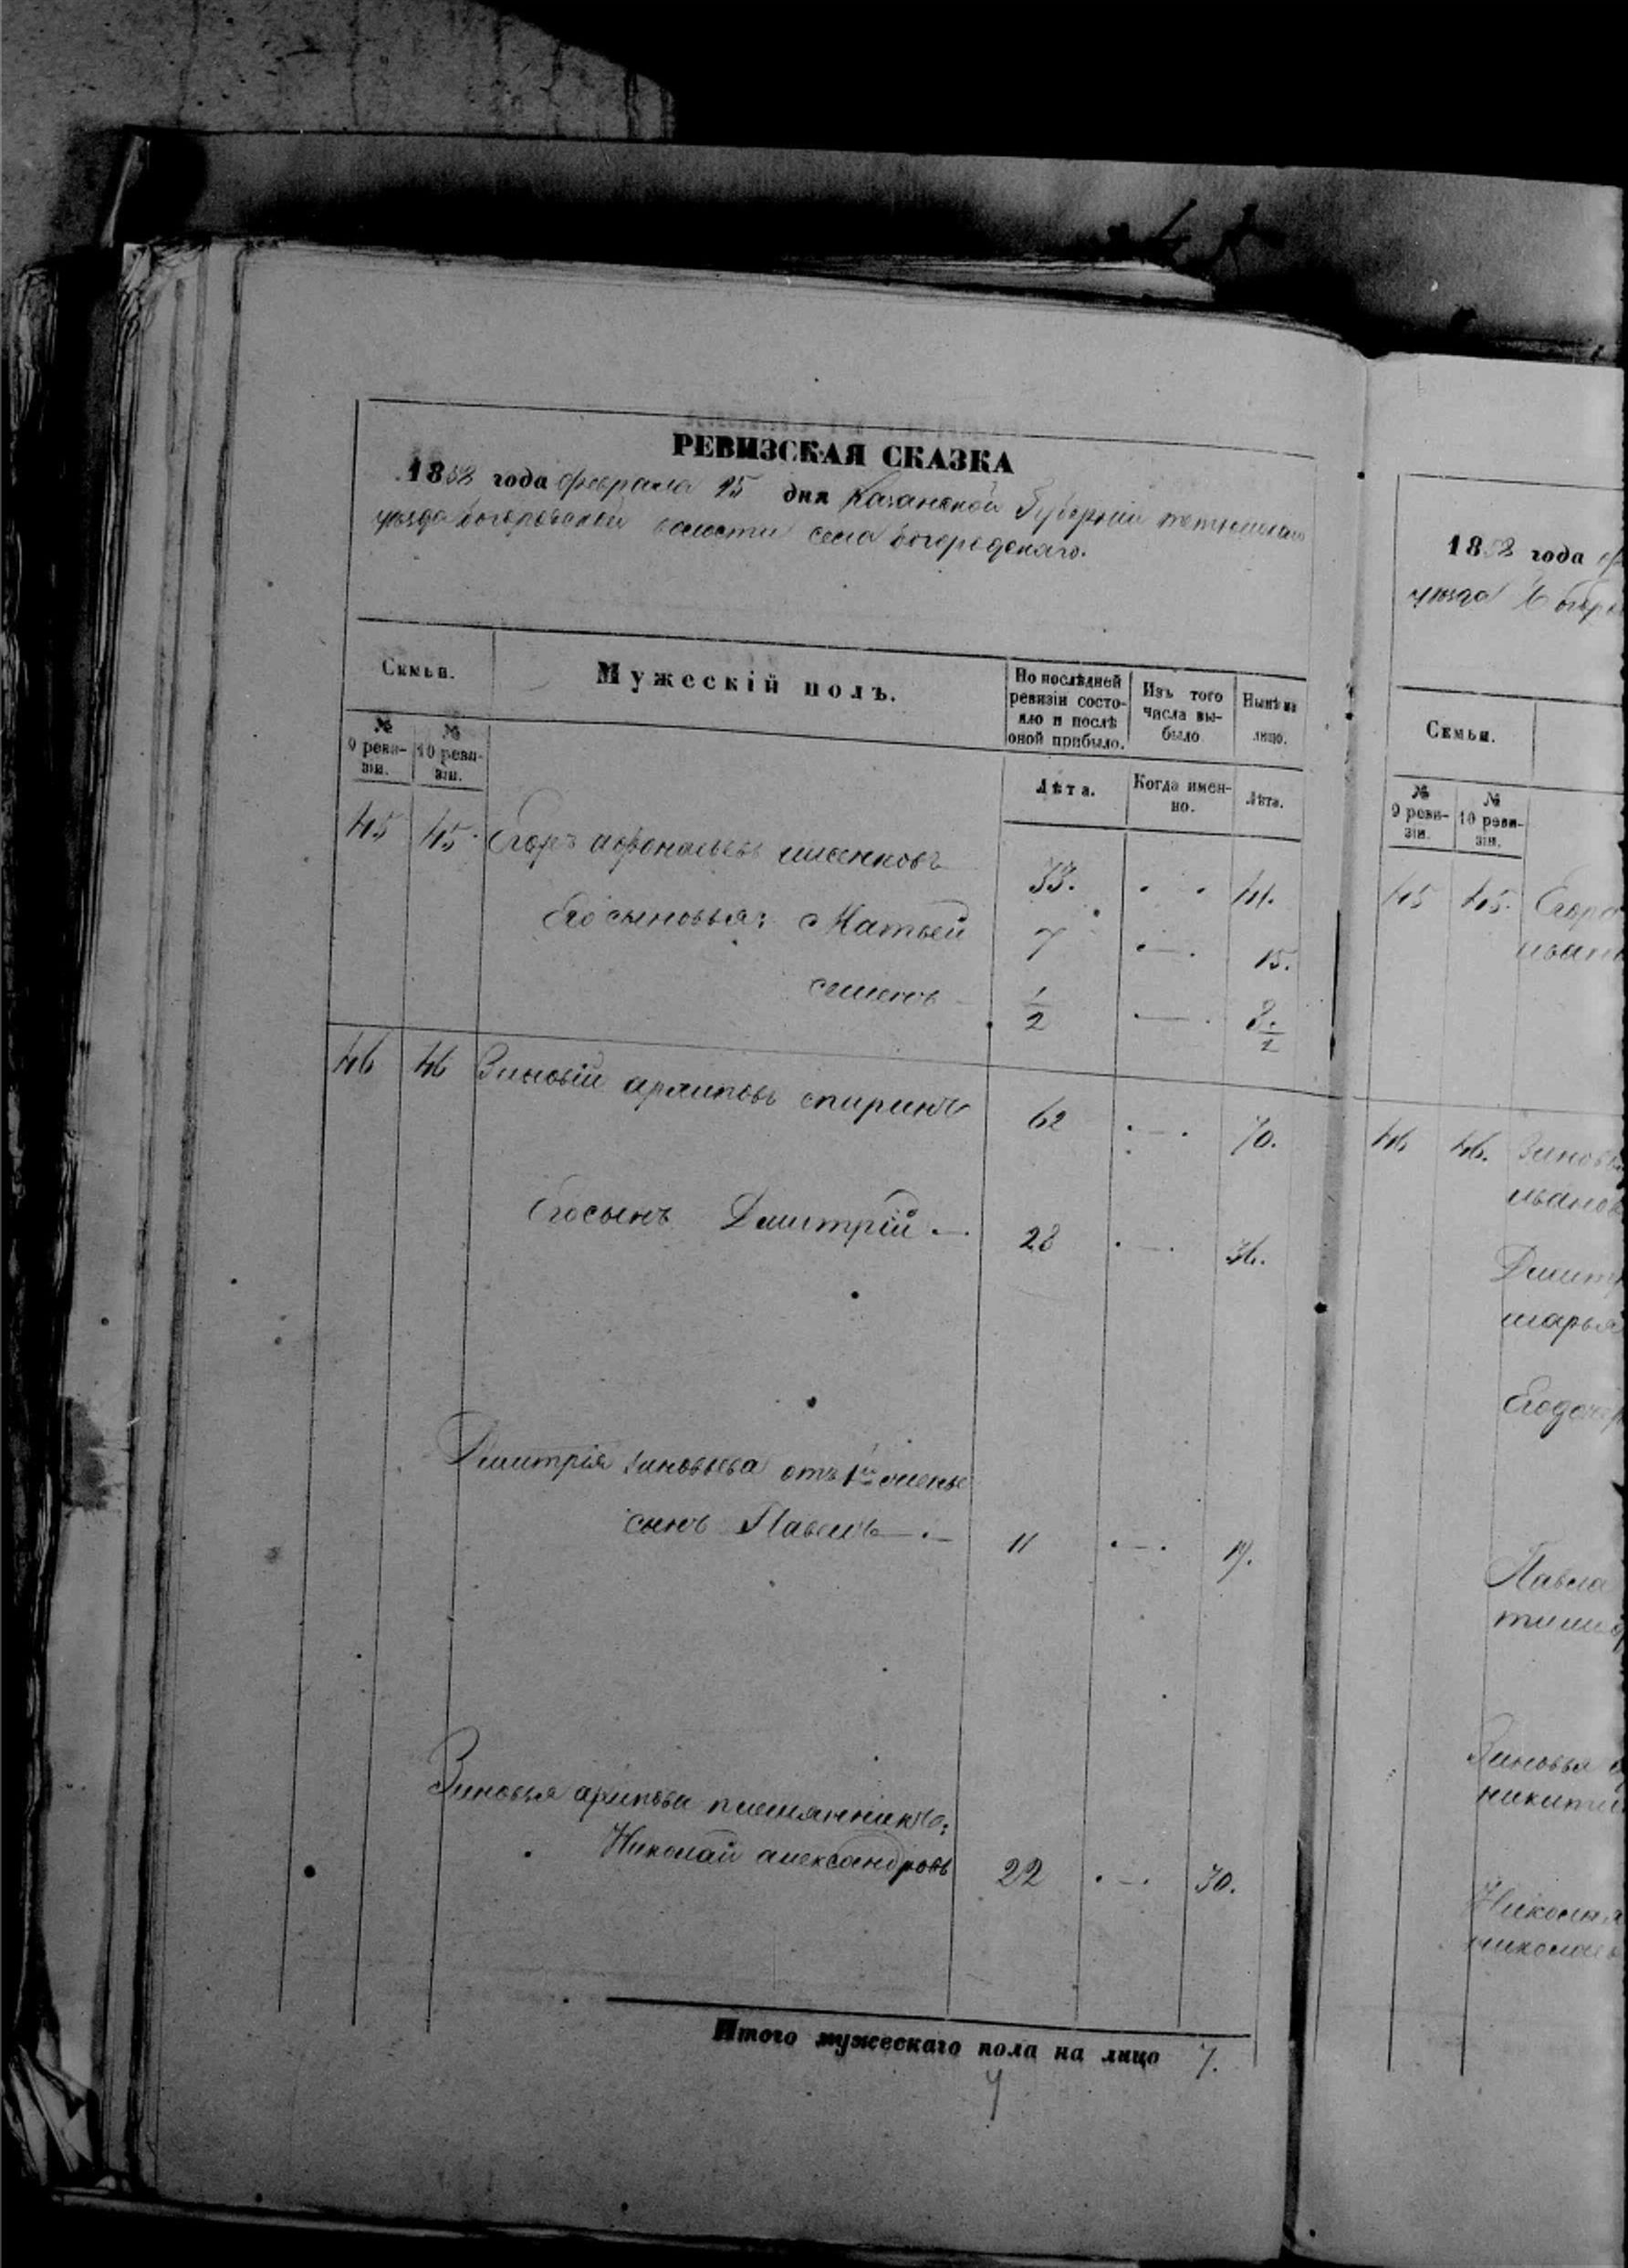 РЕВИЗСКАЯ СКАЗКА
1858 года февраля 15 дня Казанской Губерніи тетюшскаго
уезда Богородской волости села Богородскаго.
Семьи.
Мужескій полъ.
По послѣдней ревизіи состояло и послѣ оной прибыло.
Изъ того числа выбыло
Нынѣ на лицо.
№ 9 ревизіи.
№ 10 ревизіи.
Лѣта.
Когда именно.
Лѣта.
45 45. Егоръ афонасьевъ 33. 41.
Его сыновья: Матвей 7 15.
семенъ 1/2 8 1/2
46 46 Зиновій архиповъ спиринъ 62 70.
Его сынъ Дмитрій 28 36.
Дмитрія зиновьева отъ 1й
сынъ Павелъ 11 19.
Зиновья архипова племянникъ:
Николай александровъ 22 30.
Итого мужескаго пола на лицо 7.
1858 года
уезда Богоро
Семьи.
№ 9 ревизіи.
№ 10 ревизіи.
45 45. Егора
иван
46 46. Зиновья
иванов
Дмитр
марья
Его дочер
Павла
тимоф
Зиновья
никити
Николая
николаев